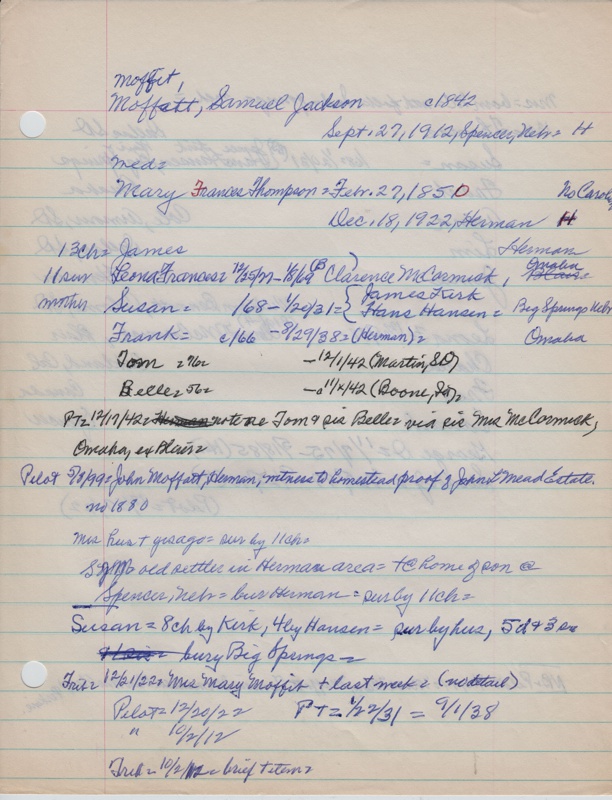 Moffit,
Moffatt, Samuel Jackson c1842
Sept. 27, 1912, Spencer, Nebr= H
med=
Mary Frances Thompson = Febr. 27, 1850 No Carolina
Dec. 18, 1922, Herman H
13ch = James Herman
11 sur Leona Frances = Clarence McCormick, Omaha
mother Susan = /68 - 1/20/31 = { James Kirk
Hans Hansen = Big Springs Nebr
Frank = c/66 - 8/29/38 = (Herman) = Omaha
Tom = 76= - 12/1/42 (Martin, SD)
Belle = 56= - 11/x/42 (Boone, Ia)=
PT = 12/17/42 = note re Tom & sis Belle = via sis Mrs McCormick,
Omaha, ex Blair=
Pilot John Moffatt, Herman, witness to homestead proof of John L Mead Estate.
no 1880
Mrs hus + yrs ago = sur by 11ch=
old settler in Herman area = + @ home of son @
Spencer, Nebr = bur Herman = sur by 11ch=
Susan = 8ch by Kirk, 4 by Hansen = sur by hus, 5d + 3s
bury Big Springs=
Trib = 12/21/22 = Mrs Mary Moffit + last week = (no detail)
Pilot = 12/20/22 PT = 1/22/31 = 9/1/38
" 10/2/12
Trib = 10/2/12 = brief + item=